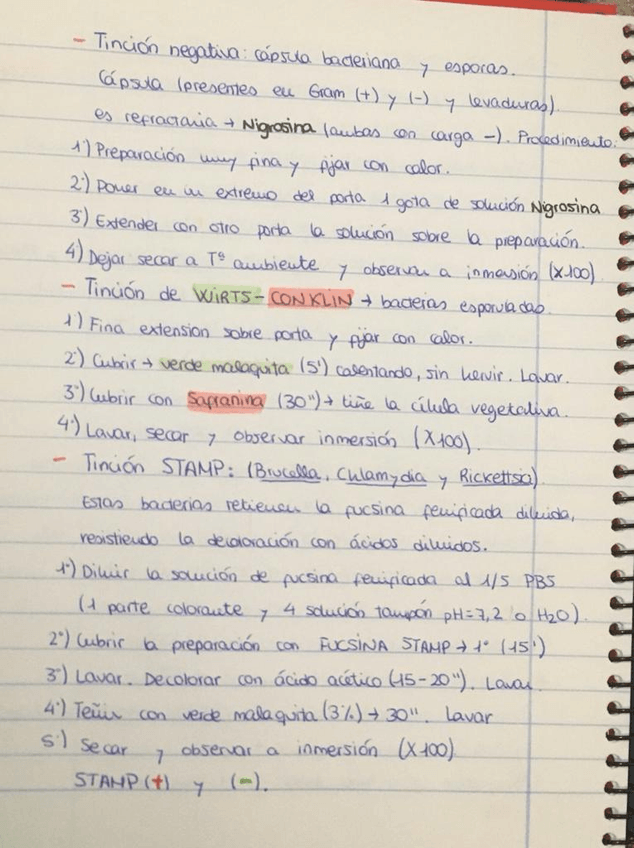 - Tinción negativa: cápsula bacteriana y esporas.
Cápsula (presentes en Gram (+) y (-) y levaduras)
es refractaria → Nigrosina (ambas con carga -). Procedimiento.
1º) Preparación muy fina y fijar con calor.
2º) Poner en un extremo del porta 1 gota de solución Nigrosina
3º) Extender con otro porta la solución sobre la preparación.
4) Dejar secar a Tº ambiente y observar a inmersión (x100)
- Tinción de WIRTS-CONKLIN → bacterias esporuladas.
1º) Fina extension sobre porta y fijar con calor.
2º) Cubrir → verde malaquita (5') calentando, sin hervir. Lavar.
3º) Cubrir con Safranina (30") → tiñe la célula vegetativa.
4º) Lavar, secar y observar inmersión (X100).
- Tinción STAMP: (Brucella, Chlamydia y Rickettsia).
Estas bacterias retienen la fucsina fenificada diluida,
resistiendo la decoloración con ácidos diluidos.
1º) Diluir la solución de fucsina fenificada al 1/5 PBS
(1 parte colorante y 4 solución tampón pH=7,2 o H2O).
2º) Cubrir la preparación con FUCSINA STAMP → 1º (15')
3º) Lavar. Decolorar con ácido acético (15-20"). Lavar.
4º) Teñir con verde malaquita (3%) → 30". Lavar
5º) Secar y observar a inmersión (X100)
STAMP (+) y (-).